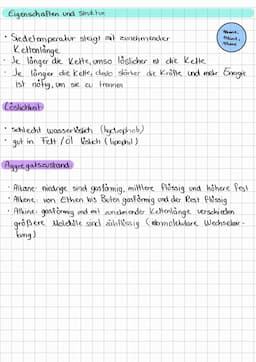 Eigenschaften und Struktur
Alkane,
Alkene,
Alkine
• Siedetemperatur steigt mit zunehmender
Kettenlänge
• Je länger die Kette, umso löslicher ist die Kette
• Je länger die Kette, desto stärker die Kräfte und mehr Energie
ist nötig, um sie zu trennen
Löslichkeit
• schlecht wasserlöslich (hydrophob)
• gut in Fett / Öl löslich (lipophil)
Aggregatszustand
• Alkane: niedrige sind gasförmig, mittlere flüssig und höhere fest
• Alkene: von Ethen bis Buten gasförmig und der Rest flüssig
• Alkine: gasförmig und mit zunehmender Kettenlänge verschieden
größere Moleküle sind zähflüssig (